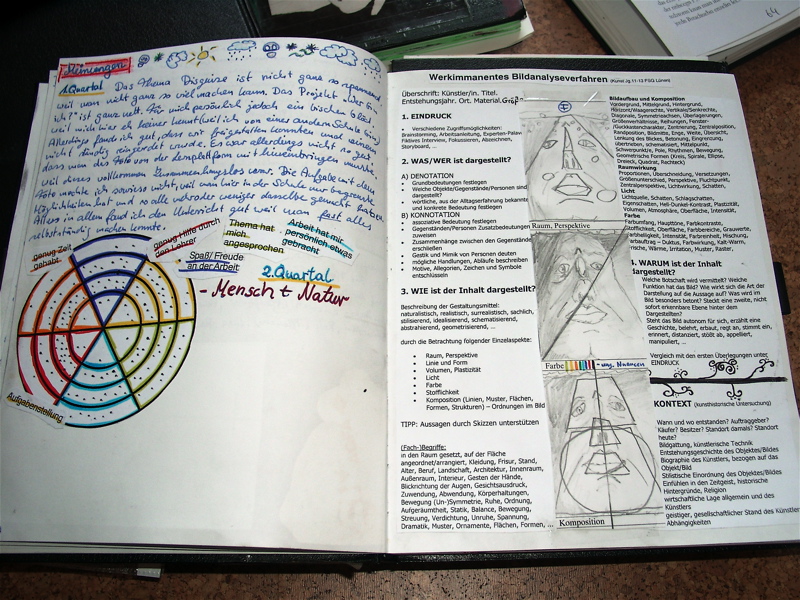 Meinungen
1. Quartal
Das Thema Disguise ist nicht ganz so spannend,
weil man nicht ganz so viel machen kann. Das Projekt
ich?" ist ganz nett. Für mich persönlich jedoch ein bischen
weil mich hier eh keiner kennt (weil ich von einer andern Schule bin)
Allerdings fand ich gut, dass wir frei gestalten konnten und einem
nicht ständig reingeredet wurde. Es war allerdings nicht so gut
dass man das Foto von der Lernplattform mit hineinbringen musste
weil dieses vollkommen zusammenhangslos kam. Die Aufgabe mit dem
Foto mochte ich sowieso nicht, weil man hier in der Schule nur begrenzte
Möglichkeiten hat und so alle mehr oder weniger dasselbe gemacht haben
Alles in allem fand ich den Unterricht gut weil man fast alles
selbstständig machen konnte.
genug Zeit
gehabt
genug Hilfe durch
den Lehrer
Thema hat
mich
angesprochen
Arbeit hat mir
persönlich etwas
gebracht
Spaß/ Freude
an der Arbeit
Aufgabenstellung
2. Quartal
- Mensch + Natur
Werkimmanentes Bildanalyseverfahren (Kunst Jg.11-13 FSG Lüren)
Überschrift: Künstler/in. Titel.
Entstehungsjahr. Ort. Material, Größe
1. EINDRUCK
• Verschiedene Zugriffsmöglichkeiten:
Brainstorming, Arbeitsanleitung, Experten-Palaver
Fiktives Interview, Fokussieren, Abzeichnen,
Storyboard, ...
2. WAS/WER ist dargestellt?
A) DENOTATION
• Grundbedeutung festlegen
• Welche Objekte/Gegenstände/Personen sind
dargestellt?
• wörtliche, aus der Alltagserfahrung bekannte
und konkrete Bedeutung festlegen
B) KONNOTATION
• assoziative Bedeutung festlegen
• Gegenständen/Personen Zusatzbedeutungen
zuweisen
• Zusammenhänge zwischen den Gegenständen
erschließen
• Gestik und Mimik von Personen deuten
• mögliche Handlungen, Abläufe beschreiben
• Motive, Allegorien, Zeichen und Symbole
entschlüsseln
3. WIE ist der Inhalt dargestellt?
Beschreibung der Gestaltungsmittel:
naturalistisch, realistisch, surrealistisch, sachlich,
stilisierend, idealisierend, schematisierend,
abstrahierend, geometrisierend, ...
durch die Betrachtung folgender Einzelaspekte:
• Raum, Perspektive
• Linie und Form
• Volumen, Plastizität
• Licht
• Farbe
• Stofflichkeit
• Komposition (Linien, Muster, Flächen,
Formen, Strukturen) – Ordnungen im Bild
TIPP: Aussagen durch Skizzen unterstützen
(Fach-)Begriffe:
in den Raum gesetzt, auf der Fläche
angeordnet/arrangiert, Kleidung, Frisur, Stand,
Alter, Beruf, Landschaft, Architektur, Innenraum,
Außenraum, Interieur, Gesten der Hände,
Blickrichtung der Augen, Gesichtsausdruck,
Zuwendung, Abwendung, Körperhaltungen,
Bewegung (Un-)Symmetrie, Ruhe, Ordnung,
Aufgeräumtheit, Statik, Balance, Bewegung,
Streuung, Verdichtung, Unruhe, Spannung,
Dramatik, Muster, Ornamente, Flächen, Formen, ...
Raum, Perspektive
Farbe
Komposition
Bildaufbau und Komposition
Vordergrund, Mittelgrund, Hintergrund,
Horizont/Waagerechte, Vertikale/Senkrechte,
Diagonale, Symmetrieachsen, Überlagerungen,
Größenverhältnisse, Reihungen, Fenster-
/Guckkastencharakter, Zentrierung, Zentralposition,
Randposition, Bildmitte, Enge, Weite, Übersicht,
Lenkung des Blickes, Betonung, Eingrenzung,
übertrieben, schematisiert, Mittelpunkt,
Schwerpunkt/e, Pole, Rhythmen, Bewegung,
Geometrische Formen (Kreis, Spirale, Ellipse,
Dreieck, Quadrat, Rechteck,
Raumwirkung
Proportionen, Überschneidung, Versetzungen,
Größerwerdung, Perspektive, Fluchtpunkt,
Zentralperspektive, Lichtwirkung, Schatten,
Licht
Lichtquelle, Schatten, Schlagschatten,
Eigenschatten, Hell-Dunkel-Kontrast, Plastizität,
Volumen, Atmosphäre, Oberfläche, Intensität,
Farbe
Farbumfang, Haupttöne, Farbkontraste,
Stofflichkeit, Oberfläche, Farbbereiche, Grauwerte,
Farbhelligkeit, Intensität, Farbreinheit, Mischung,
Farbauftrag – Duktus, Farbwirkung, Kalt-Warm,
Frische, Wärme, Irritation, Muster, Raster,
4. WARUM ist der Inhalt
dargestellt?
Welche Botschaft wird vermittelt? Welche
Funktion hat das Bild? Wie wirkt sich die Art der
Darstellung auf die Aussage auf? Was wird im
Bild besonders betont? Steckt eine zweite, nicht
sofort erkennbare Ebene hinter dem
Dargestellten?
Steht das Bild autonom für sich, erzählt eine
Geschichte, belehrt, erbaut, regt an, stimmt ein,
erinnert, distanziert, stößt ab, appelliert,
manipuliert, ...
Vergleich mit den ersten Überlegungen unter
EINDRUCK
KONTEXT (kunsthistorische Untersuchung)
Wann und wo entstanden? Auftraggeber?
Käufer? Besitzer? Standort damals? Standort
heute?
Bildgattung, künstlerische Technik
Entstehungsgeschichte des Objektes/Bildes
Biographie des Künstlers, bezogen auf das
Objekt/Bild
Stilistische Einordnung des Objektes/Bildes
Einfühlen in den Zeitgeist, historische
Hintergründe, Religion
wirtschaftliche Lage allgemein und des
Künstlers
geistiger, gesellschaftlicher Stand des Künstlers
Abhängigkeiten
64